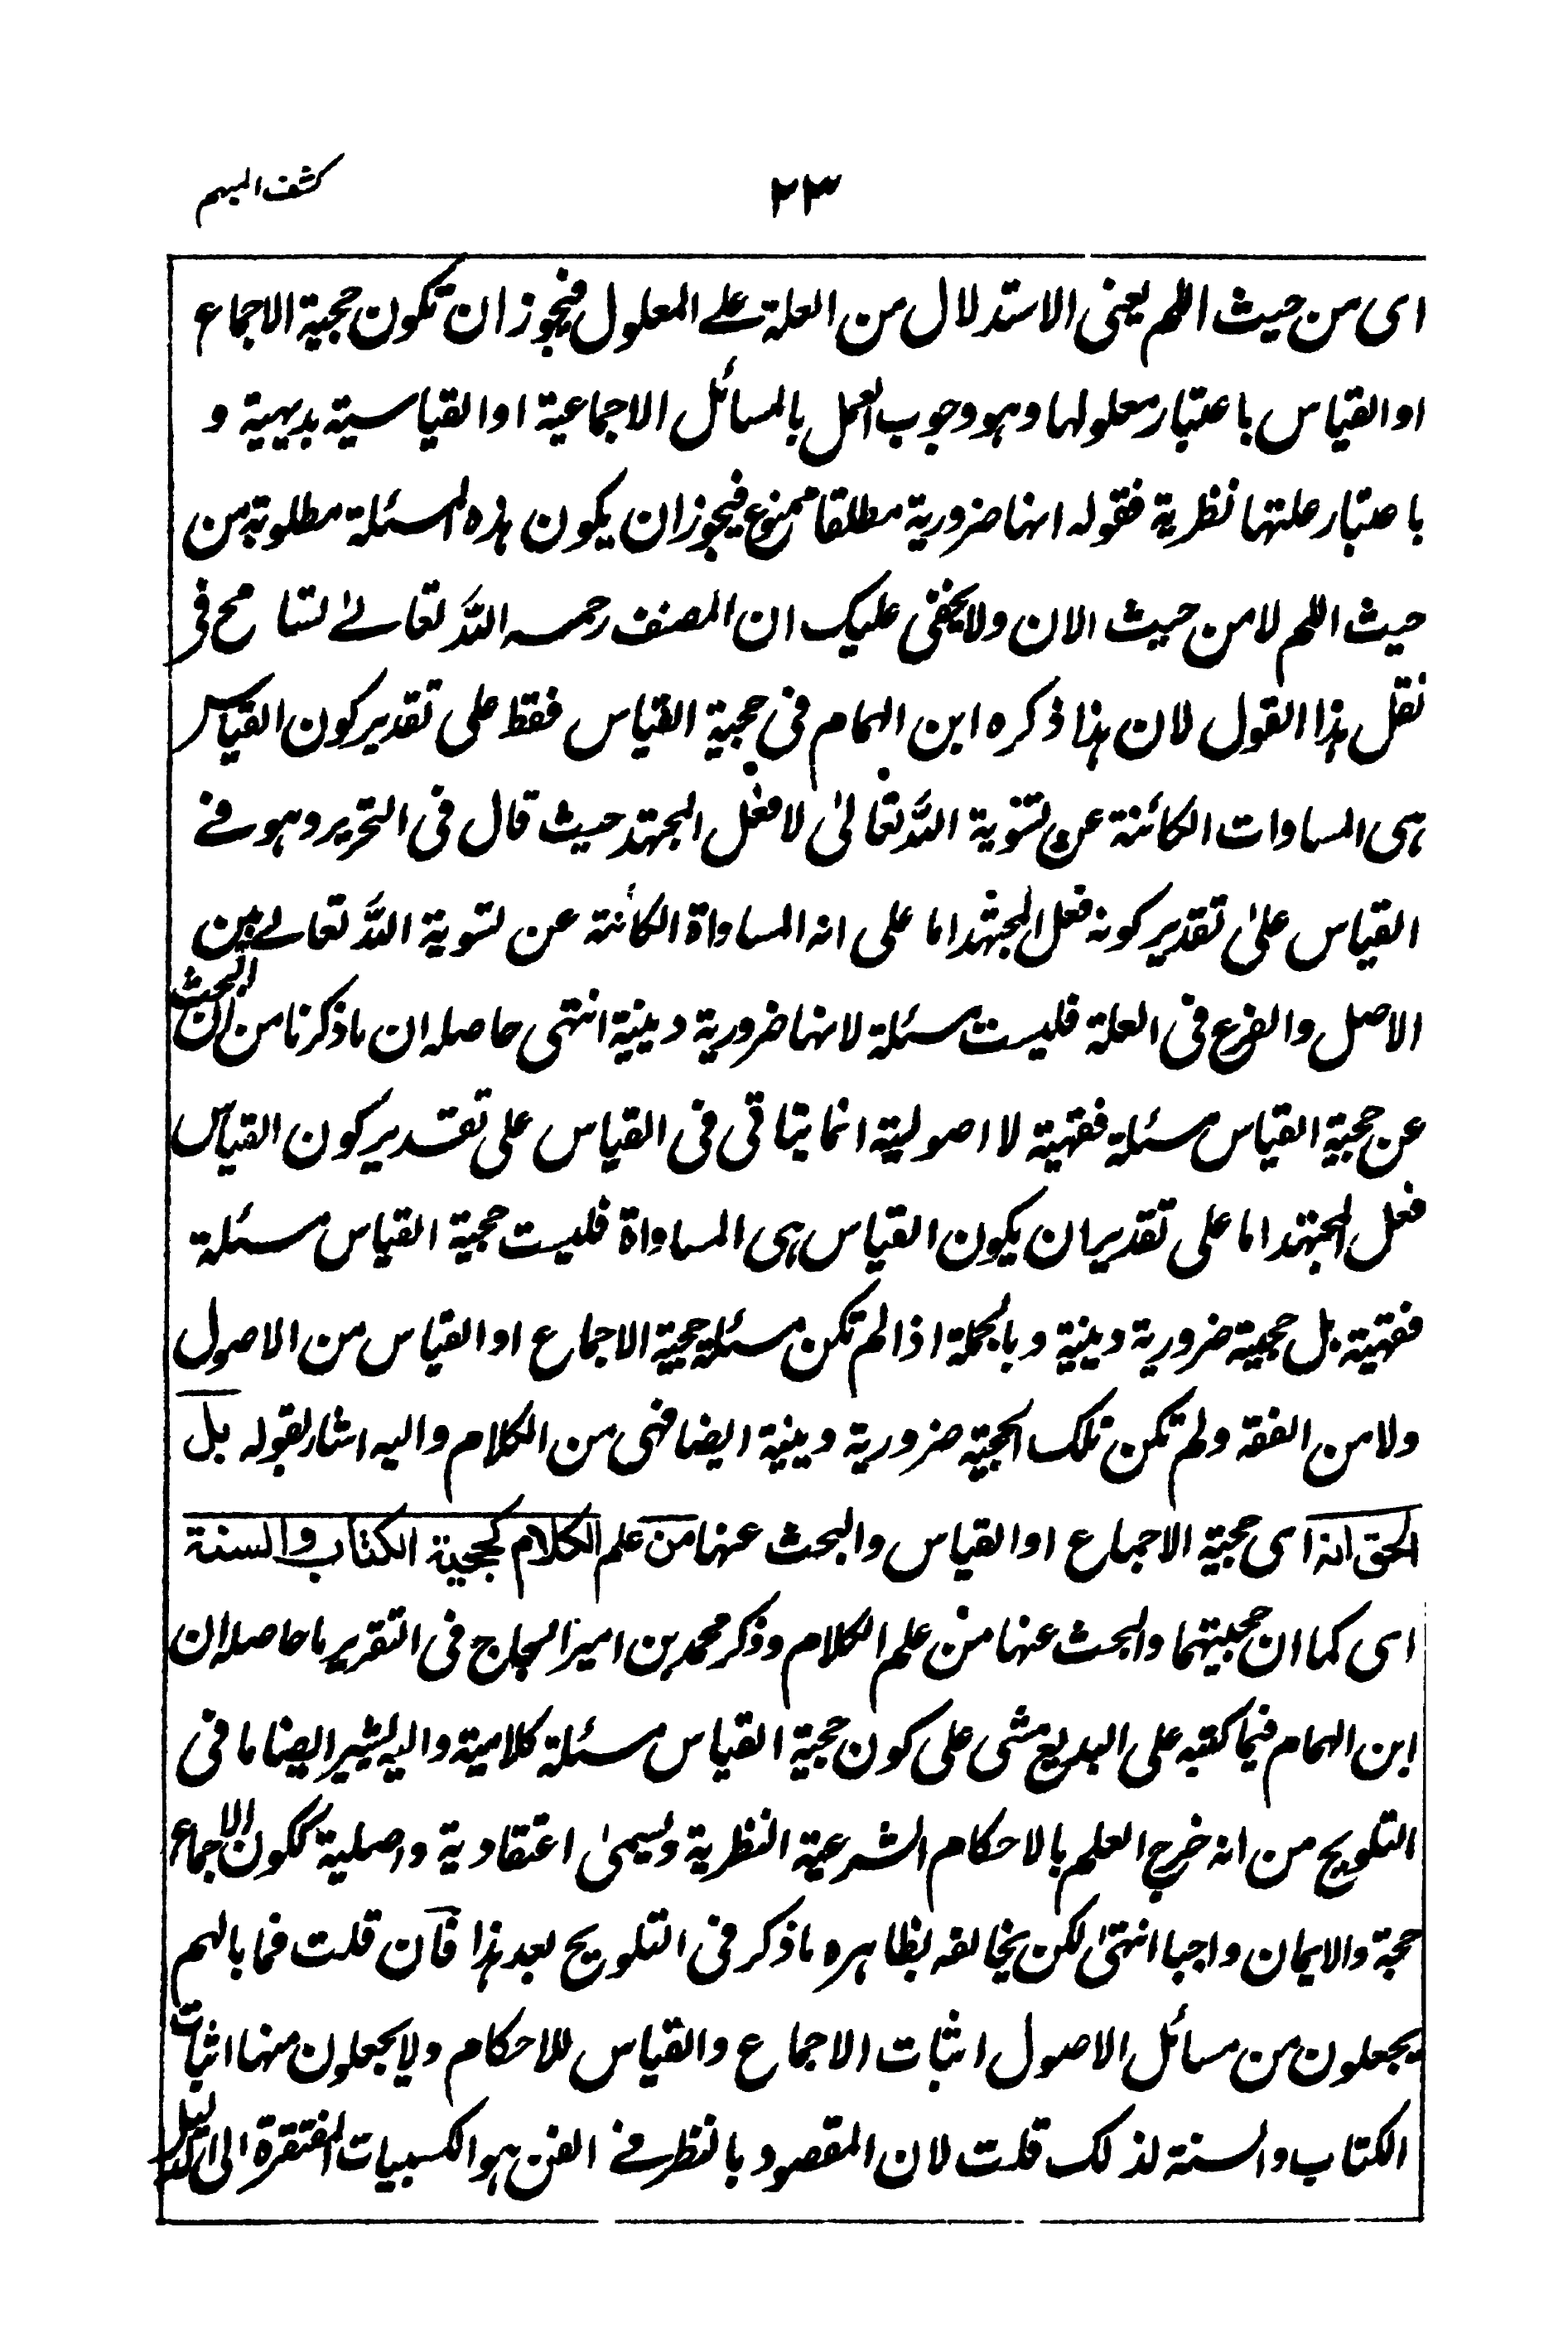 كشف المبهم
٢٣
اى من حيث اللم يعنى الاستدلال من العلة على المعلول فيجوز ان تكون حجية الاجماع
او القياس باعتبار معلولها وهو وجوب العمل بالمسائل الاجماعية او القياسية بديهية و
باعتبار علتها نظرية فقوله انها ضرورية مطلقا ممنوع فيجوز ان يكون هذه المسئلة مطلوبة من
حيث اللم لا من حيث الان ولا يخفى عليك ان المصنف رحمه الله تعالى تسامح فى
نقل هذا القول لان هذا ذكره ابن الهمام فى حجية القياس فقط على تقدير كون القياس
هى المساوات الكائنة عن تسوية الله تعالى لا فعل المجتهد حيث قال فى التحرير وهو فى
القياس على تقدير كونه فعل المجتهد اما على انه المساواة الكائنة عن تسوية الله تعالى بين
الاصل والفرع فى العلة فليست مسئلة لانها ضرورية دينية انتهى حاصله ان ما ذكرنا من ان البحث
عن حجية القياس مسئلة فقهية لا اصولية انما يتاتى فى القياس على تقدير كون القياس
فعل المجتهد اما على تقدير ان يكون القياس هى المساواة فليست حجية القياس مسئلة
فقهية بل حجية ضرورية دينية وبالجملة اذا لم تكن مسئلة حجية الاجماع او القياس من الاصول
ولا من الفقه ولم تكن تلك الحجية ضرورية دينية ايضا فهى من الكلام واليه اشار بقوله بل
الحق انه اى حجية الاجماع او القياس والبحث عنها من علم الكلام كحجية الكتاب والسنة
اى كما ان حجيتهما والبحث عنها من علم الكلام وذكر محمد بن امير الحاج فى التقرير ما حاصله ان
ابن الهمام فيما كتبه على البديع مشى على كون حجية القياس مسئلة كلامية واليه يشير ايضا ما فى
التلويح من انه خرج العلم بالاحكام الشرعية النظرية ويسمى اعتقادية واصلية ككون الاجماع
حجة والايمان واجبا انتهى لكن يخالفه بظاهره ما ذكر فى التلويح بعد هذا فان قلت فما بالهم
يجعلون من مسائل الاصول اثبات الاجماع والقياس للاحكام ولا يجعلون منها اثبات
الكتاب والسنة لذلك قلت لان المقصود بالنظر فى الفن هو الكسبيات المفتقرة الى الدليل